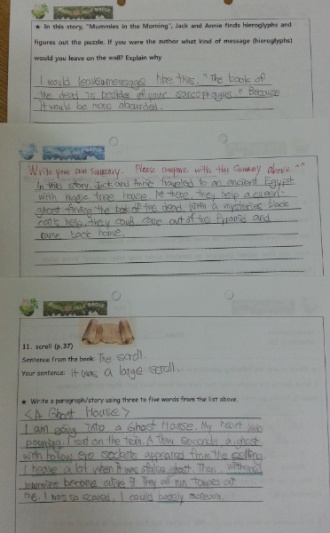 ★ In this story, "Mummies in the Morning", Jack and Annie finds hieroglyphs and
figures out the puzzle. If you were the author what kind of message (hieroglyphs)
would you leave on the wall? Explain why
I would leave message like this. "The book of
the dead is besides of your sarcophagus." Because
it would be more
Write your own summary. Please compare with the summary above ^^
In this story, Jack and Annie traveled to an ancient Egypt
with magic tree house. At there, they help a queen
ghost finding the book of the dead. With a mysterious black
cat's help, they could come out of the pyramid and
came back home.
11. scroll (p.37)
Sentence from the book: The scroll.
Your sentence: It was a large scroll.
★ Write a paragraph/story using three to five words from the list above.
<A Ghost House>
I am going into a Ghost House. My heart was
pounding. I rod on the train. A few seconds a ghost
with hollow eye sockets appeared from the ceiling
I have a lot when it was ghost. Then,
become alive !! They all run towards at
me. I was so scared. I could barely scream.